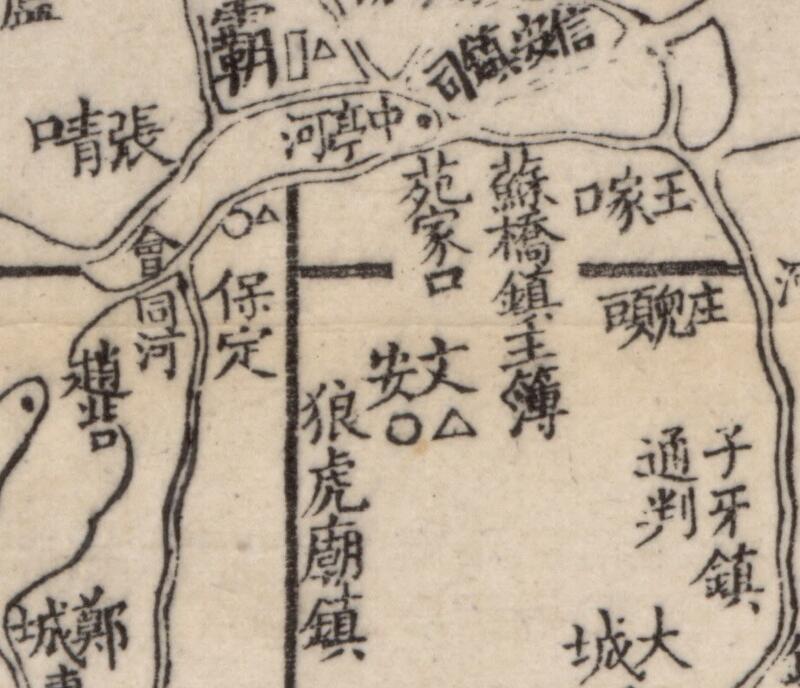 霸
信安鎮司
張青口
中亭河
苑家口
蘇橋鎮主簿
王家口
會同河
保定
庄兒頭
河
趙北口
文安
狼虎廟鎮
子牙鎮
通判
鄭城
大城